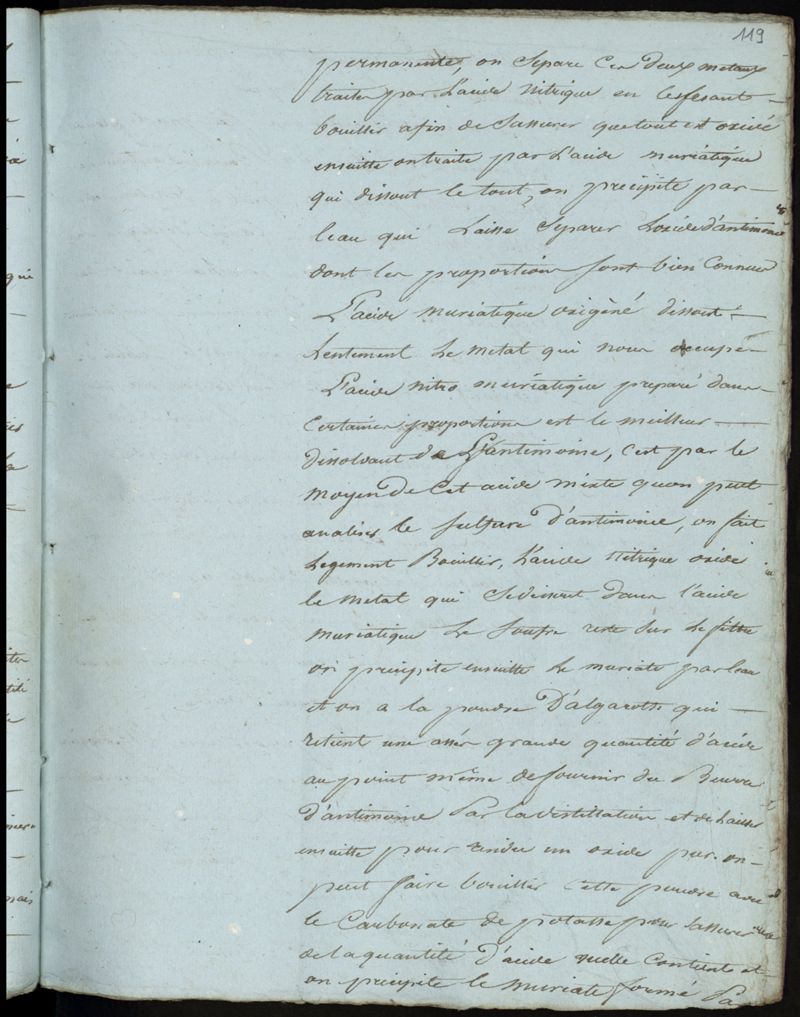 119
permanente, on Separe Ces deux metaux
traités par L'acide Nitrique en les fesant
bouillir afin de Sassurer que tout est oxidé
ensuitte on traite par L'acide muriatique
qui dissout le tout, on precipite par
leau qui Laisse Separer Loxide d'antimoine
dont les proportions sont bien Connues
L'acide muriatique oxigèné dissout
Lentement le metal qui nous occupe
L'acide nitro muriatique preparé dans
Certaines proportions est le meilleur
dissolvant de L'antimoine, C'est par le
moyen de Cet acide mixte quon peut
analiser le sulfure d'antimoine, on fait
Legement Bouillir, L'acide Nitrique oxide
le metal qui se dissout dans l'acide
muriatique Le Soufre reste Sur Le filtre
on precipite ensuitte Le muriate par leau
et on a la poudre D'algaroth qui
retient une assés grande quantité d'acide
au point même de fournir du Beurre
d'antimoine Par la distillation et de Laisser
ensuitte pour residu un oxide pur on
peut faire bouillir Cette poudre avec
le Carbonate de potasse pour Sassurer
de la quantité d'acide quelle Contient et
on precipite le muriate formé Pa